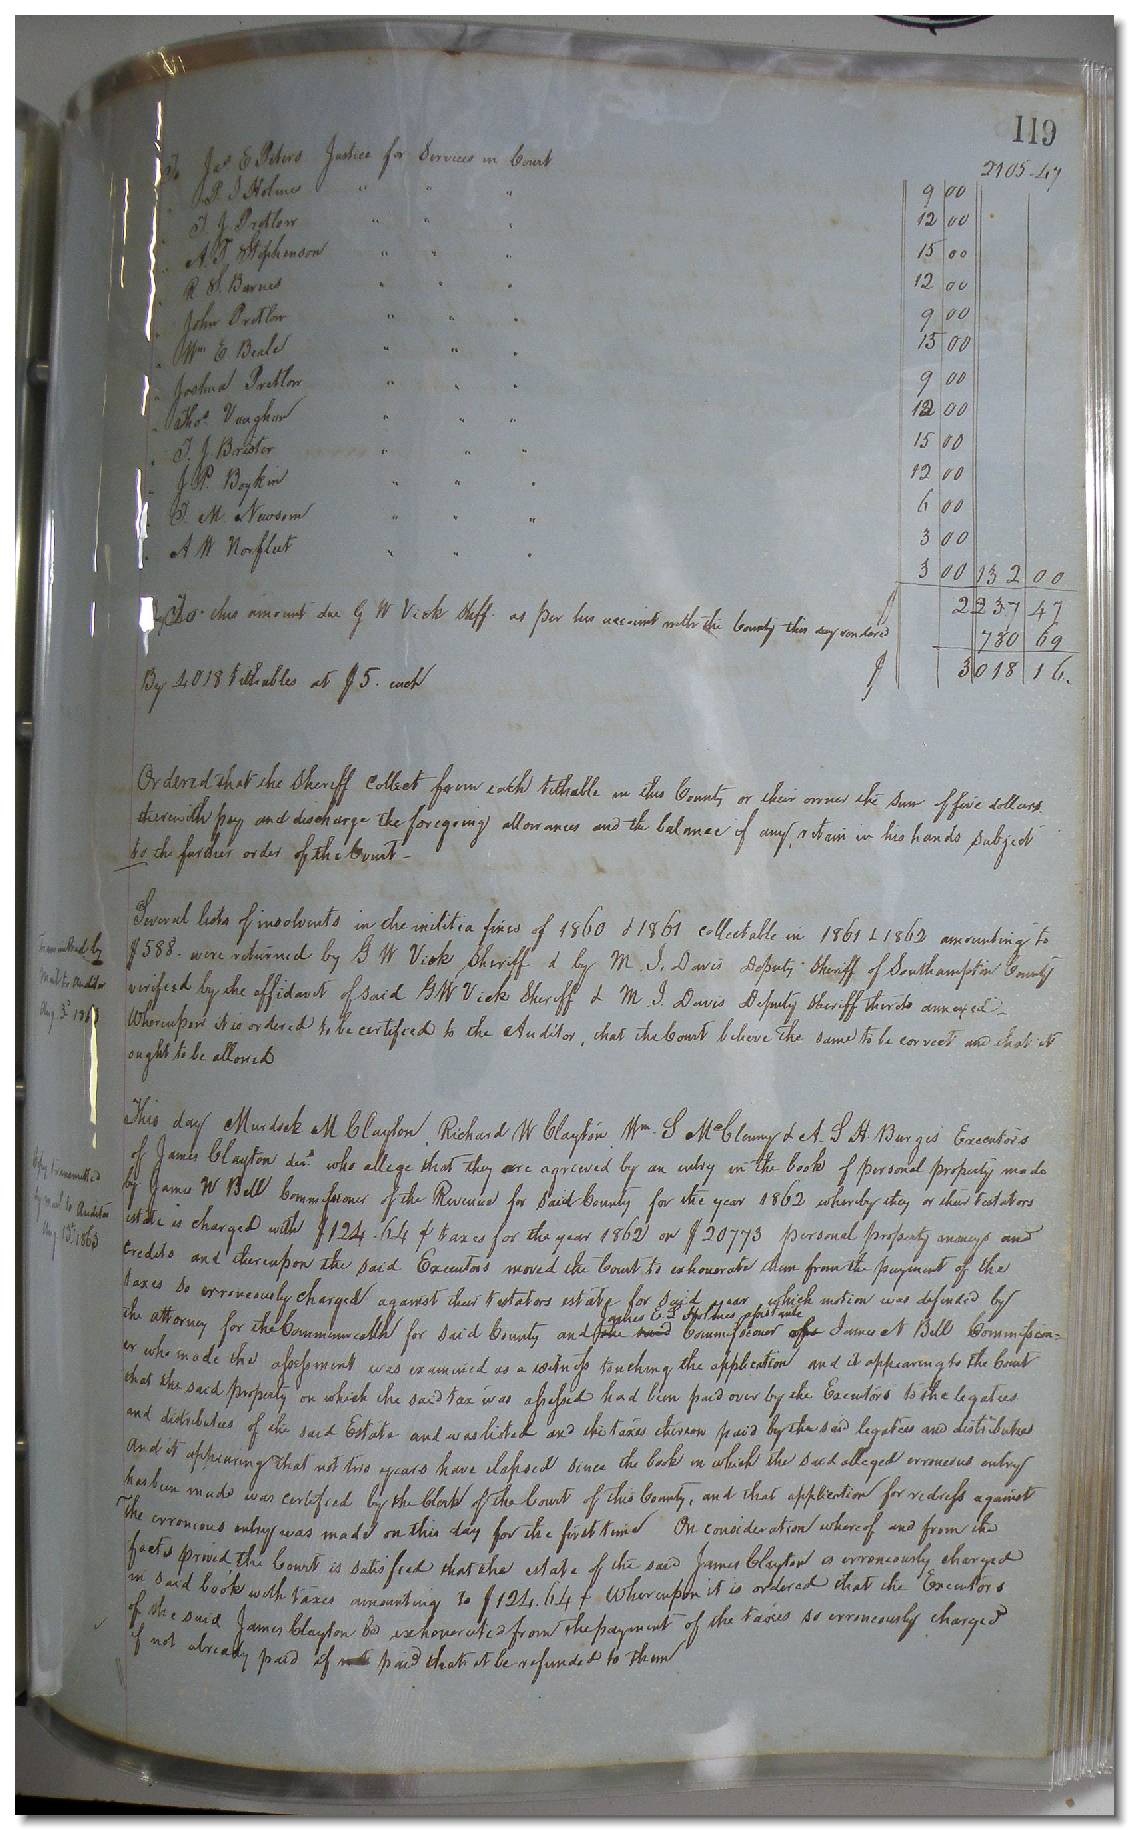 119
2105-47
To Jas E Peters Justice for Services in Court 9 00
" P. D Holmes " " " 12 00
" T. J. Pretlow " " " 15 00
" A. T. Stephenson " " " 12 00
" R. S. Barnes " " " 9 00
" John Pretlow " " " 15 00
" Wm E Beale " " " 9 00
" Joshua Pretlow " " " 12 00
" Thos Vaughan " " " 15 00
" T. J. Brister " " " 12 00
" J P. Boykin " " " 6 00
" T. M. Newsom " " " 3 00
" A W Norfleet " " " 3 00 132 00
$ 2237 47
To this amount due G W Vick Shff. as per his account with the County this day rendered 780 69
$ 3018 16.
By 4018 tithables at $5. each
Ordered that the Sheriff collect from each tithable in this County or their owner the sum of five dollars
therewith pay and discharge the foregoing allowances and the balance if any, retain in his hands subject
to the further order of the Court-
Several lists of insolvents in the militia fines of 1860 & 1861 collectable in 1861 & 1862 amounting to
$588. were returned by G W Vick Sheriff & by M. J. Davis Deputy Sheriff of Southampton County
verified by the affidavit of said G W Vick Sheriff & M J. Davis Deputy Sheriff thereto annexed-
Whereupon it is ordered to be certified to the Auditor, that the Court believe the same to be correct and that it
ought to be allowed
Transmitted by
Mail to Auditor
Aug. 3d
This day Murdock M Clayton, Richard W Clayton, Wm. S McClenny & A. S. H. Burges Executors
of James Clayton decd. who allege that they are agrieved by an entry in the book of personal property made
by James W Bell Commissioner of the Revenue for said County for the year 1862 whereby they or their testators
estate is charged with $124.64 ¢ taxes for the year 1862 on $20773 personal property moneys and
credits and thereupon the said Executors moved the Court to exhonorate them from the payment of the
taxes so erroneously charged against their testators estate for said year which motion was defended by
James E
the attorney for the Commonwealth for said County and the said Commissioner James N Bell Commission-
er who made the assessment was examined as a witness touching the application and it appearing to the Court
that the said property on which the said tax was assessed had been paid over by the Executors to the legatees
and distributees of the said Estate and was listed and the taxes thereon paid by the said legatees and distributees
And it appearing that not two years have elapsed since the book in which the said alleged erroneous entry
has been made was certified by the Clerk of the Court of this County, and that application for redress against
the erroneous entry was made on this day for the first time On consideration whereof and from the
facts proved the Court is satisfied that the estate of the said James Clayton is erroneously charged
in said book with taxes amounting to $124.64 ¢ Whereupon it is ordered that the Executors
of the said James Clayton be exhonerated from the payment of the taxes so erroneously charged
if not already paid if paid that it be refunded to them
Copy transmitted
by mail to Auditor
Aug 13th 1863